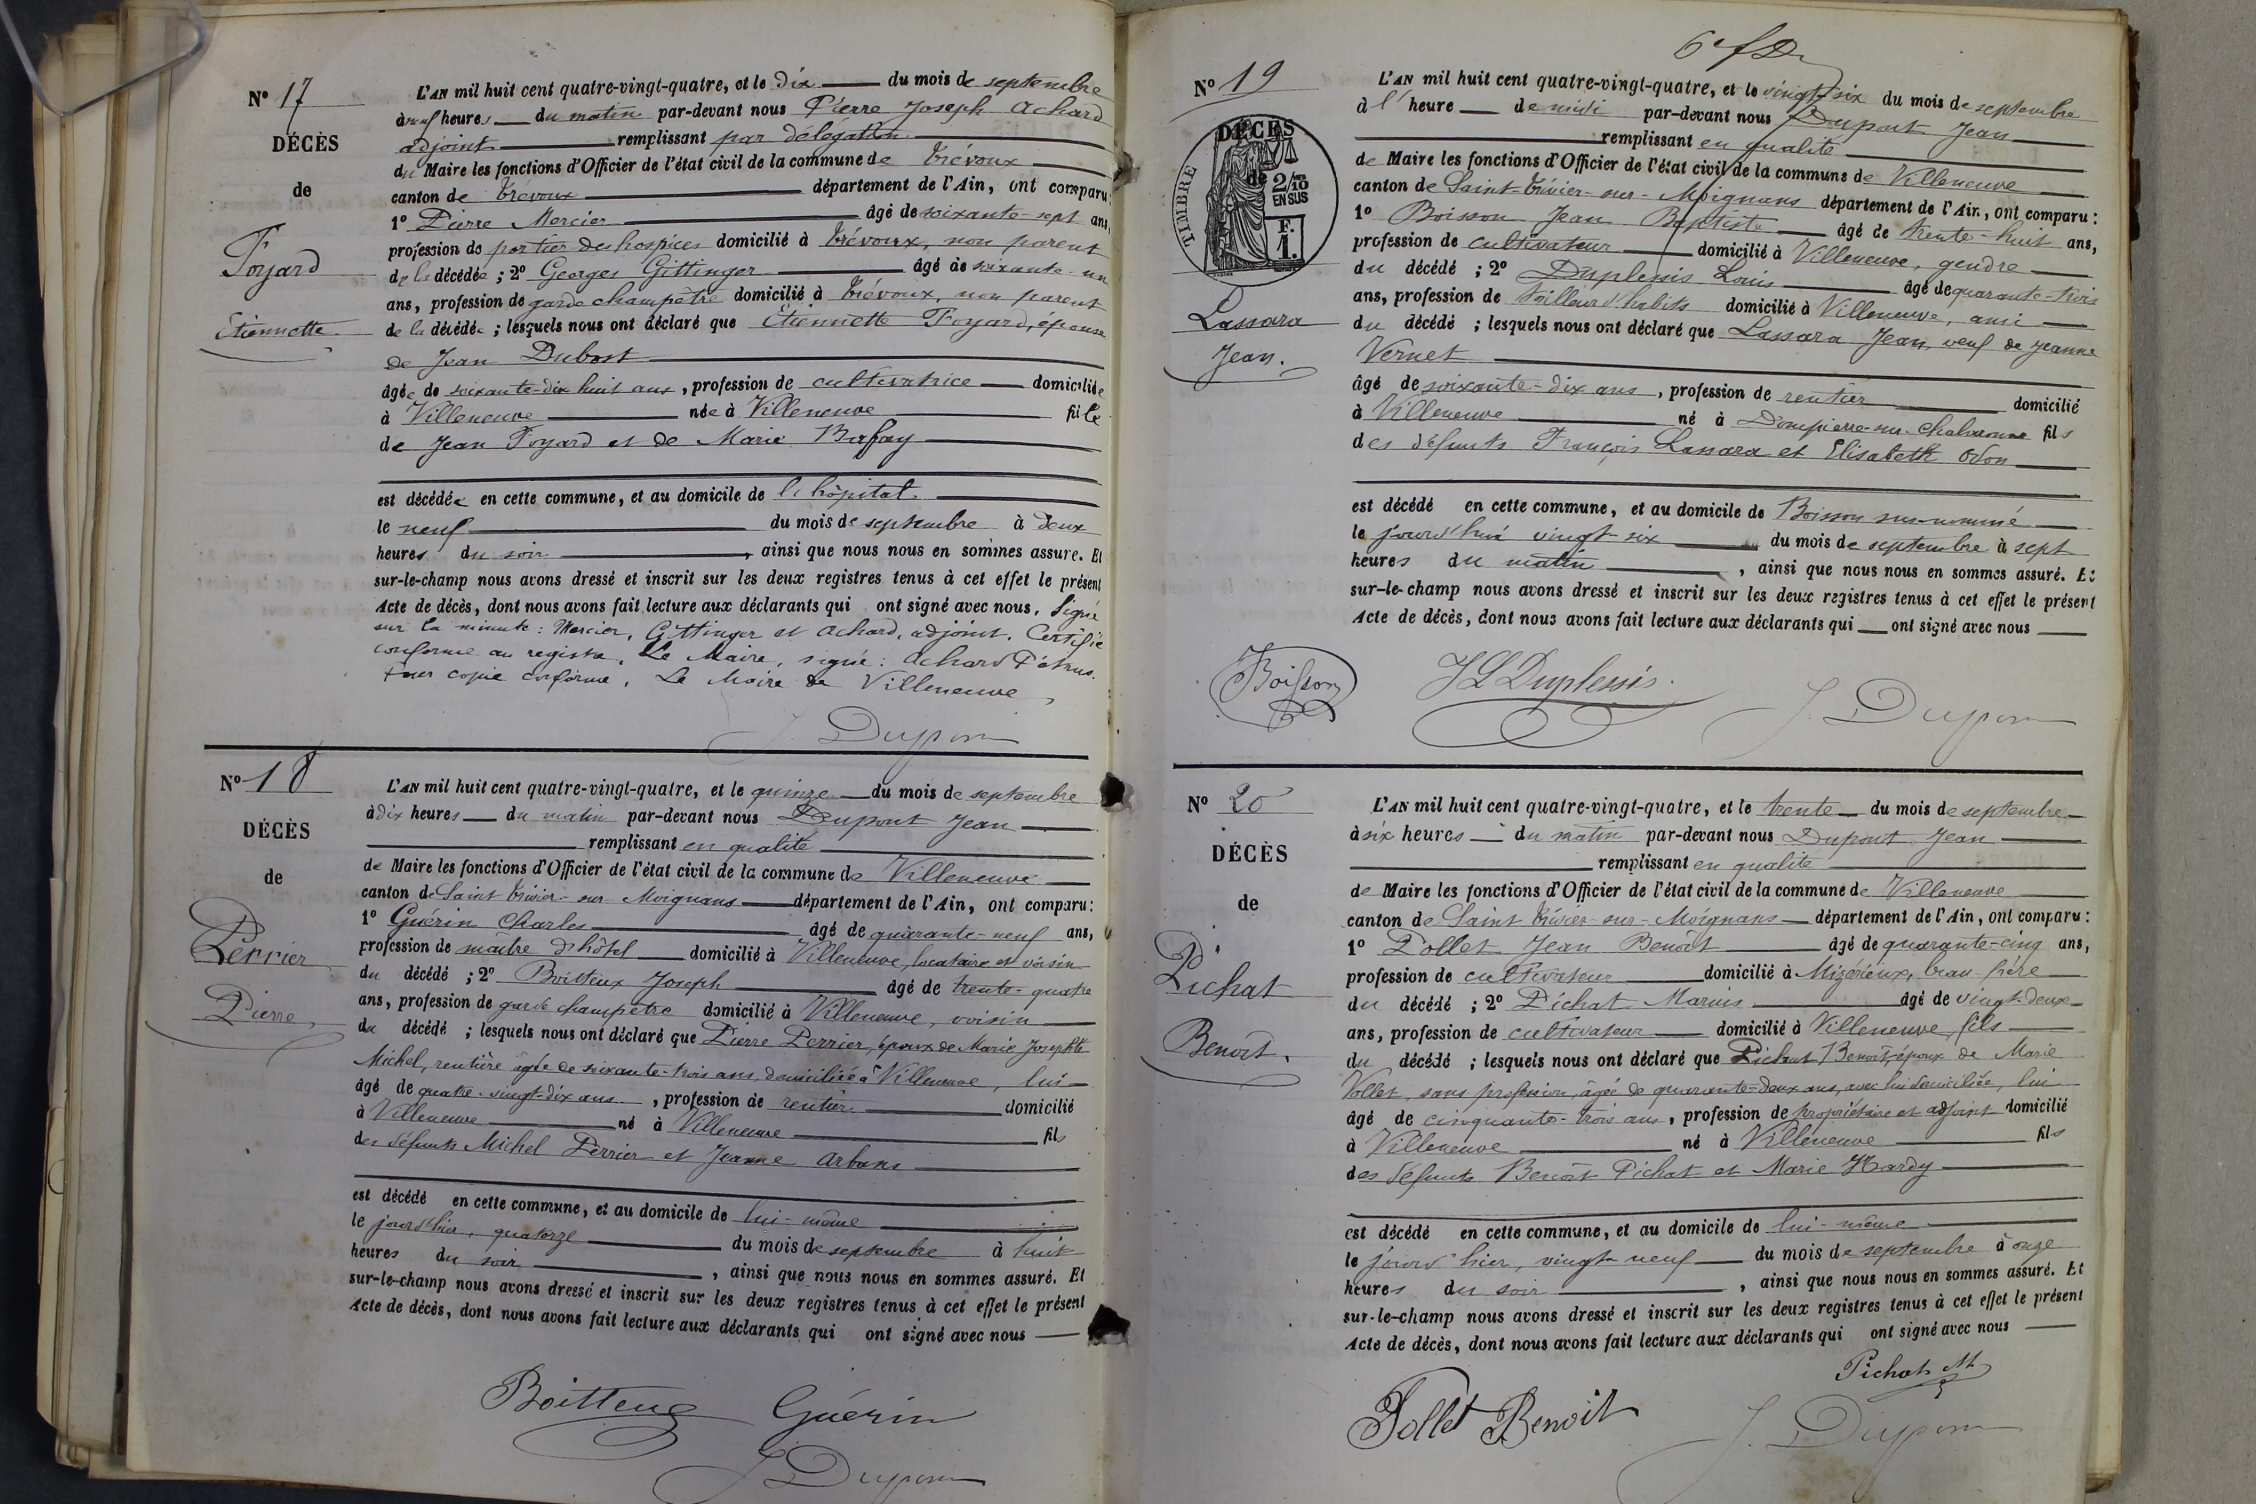 N° 17
DÉCÈS
de
Foyard
Etiennette
L'AN mil huit cent quatre-vingt-quatre, et le dix du mois de septembre
à neuf heures du matin par-devant nous Pierre Joseph Achard
adjoint remplissant par délégation
du Maire les fonctions d'Officier de l'état civil de la commune de Trévoux
canton de Trévoux département de l'Ain, ont comparu :
1° Pierre Mercier âgé de soixante-sept ans,
profession de portier des hospices domicilié à Trévoux, non parent
de la décédée ; 2° Georges Gittinger âgé de soixante-un
ans, profession de garde champêtre domicilié à Trévoux, non parent
de la décédée ; lesquels nous ont déclaré que Etiennette Foyard, épouse
de Jean Dubost
âgée de soixante-dix huit ans, profession de cultivatrice domiciliée
à Villeneuve née à Villeneuve fille
de Jean Foyard et de Marie
est décédée en cette commune, et au domicile de l'hôpital
le neuf du mois de septembre à deux
heures du soir, ainsi que nous nous en sommes assuré. Et
sur-le-champ nous avons dressé et inscrit sur les deux registres tenus à cet effet le présent
Acte de décès, dont nous avons fait lecture aux déclarants qui ont signé avec nous. Signé
sur la minute : Mercier, Gittinger et Achard, adjoint. Certifié
conforme au registre. Le Maire, signé : Achard Pétrus.
Pour copie conforme. Le Maire de Villeneuve
J. Dupont
N° 18
DÉCÈS
de
Perrier
Pierre
L'AN mil huit cent quatre-vingt-quatre, et le quinze du mois de septembre
à dix heures du matin par-devant nous Dupont Jean
remplissant en qualité
de Maire les fonctions d'Officier de l'état civil de la commune de Villeneuve
canton de Saint Trivier sur Moignans département de l'Ain, ont comparu :
1° Guérin Charles âgé de quarante-neuf ans,
profession de maître d'hôtel domicilié à Villeneuve, locataire et voisin
du décédé ; 2° Boitteux Joseph âgé de trente-quatre
ans, profession de garde champêtre domicilié à Villeneuve, voisin
du décédé ; lesquels nous ont déclaré que Pierre Perrier, époux de Marie Josephte
Michel, rentière âgée de soixante-trois ans, domiciliée à Villeneuve, lui
âgé de quatre-vingt-dix ans, profession de rentier domicilié
à Villeneuve né à Villeneuve fils
des défunts Michel Perrier et Jeanne Arbans
est décédé en cette commune, et au domicile de lui-même
le jour d'hier, quatorze du mois de septembre à huit
heures du soir, ainsi que nous nous en sommes assuré. Et
sur-le-champ nous avons dressé et inscrit sur les deux registres tenus à cet effet le présent
Acte de décès, dont nous avons fait lecture aux déclarants qui ont signé avec nous
Boitteux Guérin
J. Dupont
N° 19
DÉCÈS
de
TIMBRE
2/10
EN SUS
F.
1.
Lassara
Jean.
L'AN mil huit cent quatre-vingt-quatre, et le vingt-six du mois de septembre
à l'heure de midi par-devant nous Dupont Jean
remplissant en qualité
de Maire les fonctions d'Officier de l'état civil de la commune de Villeneuve
canton de Saint-Trivier-sur-Moignans département de l'Ain, ont comparu :
1° Boisson Jean Baptiste âgé de trente-huit ans,
profession de cultivateur domicilié à Villeneuve, gendre
du décédé ; 2° Duplessis Louis âgé de quarante-trois
ans, profession de tailleur d'habits domicilié à Villeneuve, ami
du décédé ; lesquels nous ont déclaré que Lassara Jean, veuf de Jeanne
Vernet
âgé de soixante-dix ans, profession de rentier domicilié
à Villeneuve né à Dompierre-sur-Chalaronne fils
des défunts François Lassara et Elisabeth Odon
est décédé en cette commune, et au domicile de Boisson sus-nommé
le jourd'hui vingt-six du mois de septembre à sept
heures du matin, ainsi que nous nous en sommes assuré. Et
sur-le-champ nous avons dressé et inscrit sur les deux registres tenus à cet effet le présent
Acte de décès, dont nous avons fait lecture aux déclarants qui ont signé avec nous
Boisson JL Duplessis. J. Dupont
N° 20
DÉCÈS
de
Pichat
Benoît.
L'AN mil huit cent quatre-vingt-quatre, et le trente du mois de septembre
à six heures du matin par-devant nous Dupont Jean
remplissant en qualité
de Maire les fonctions d'Officier de l'état civil de la commune de Villeneuve
canton de Saint Trivier-sur-Moignans département de l'Ain, ont comparu :
1° Tollet Jean Benoît âgé de quarante-cinq ans,
profession de cultivateur domicilié à Mizérieux, beau-frère
du décédé ; 2° Pichat Marius âgé de vingt-deux
ans, profession de cultivateur domicilié à Villeneuve, fils
du décédé ; lesquels nous ont déclaré que Pichat Benoît, époux de Marie
Tollet, sans profession, âgée de quarante-deux ans, avec lui domiciliée, lui
âgé de cinquante-trois ans, profession de propriétaire et adjoint domicilié
à Villeneuve né à Villeneuve fils
des défunts Benoît Pichat et Marie Hardy
est décédé en cette commune, et au domicile de lui-même
le jour d'hier, vingt-neuf du mois de septembre à onze
heures du soir, ainsi que nous nous en sommes assuré. Et
sur-le-champ nous avons dressé et inscrit sur les deux registres tenus à cet effet le présent
Acte de décès, dont nous avons fait lecture aux déclarants qui ont signé avec nous
Pichat M
Tollet Benoit J. Dupont